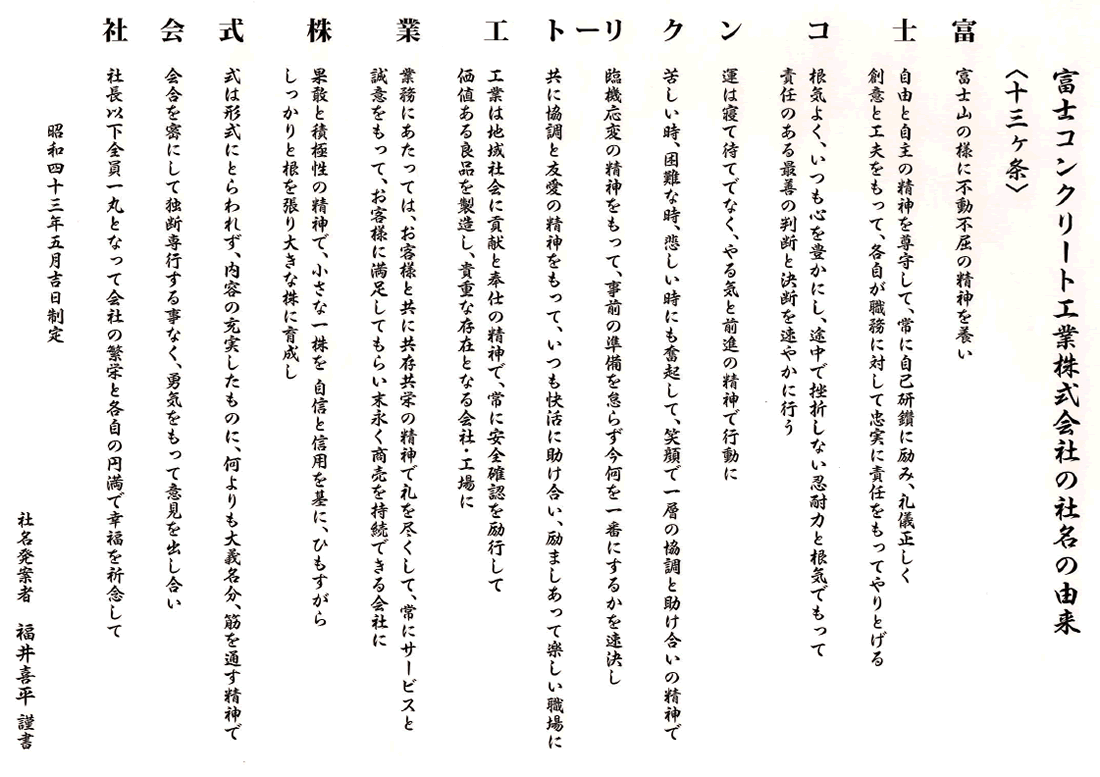 富士コンクリート工業株式会社の社名の由来
〈十三ヶ条〉
富 富士山の様に不動不屈の精神を養い
士 自由と自主の精神を尊守して、常に自己研鑽に励み、礼儀正しく
創意と工夫をもって、各自が職務に対して忠実に責任をもってやりとげる
コ 根気よく、いつも心を豊かにし、途中で挫折しない忍耐力と根気でもって
責任のある最善の判断と決断を速やかに行う
ン 運は寝て待てでなく、やる気と前進の精神で行動に
ク 苦しい時、困難な時、悲しい時にも奮起して、笑顔で一層の協調と助け合いの精神で
リー 臨機応変の精神をもって、事前の準備を怠らず今何を一番にするかを速決し
ト 共に協調と友愛の精神をもって、いつも快活に助け合い、励ましあって楽しい職場に
工 工業は地域社会に貢献と奉仕の精神で、常に安全確認を励行して
価値ある良品を製造し、貴重な存在となる会社・工場に
業 業務にあたっては、お客様と共に共存共栄の精神で礼を尽くして、常にサービスと
誠意をもって、お客様に満足してもらい末永く商売を持続できる会社に
株 果敢と積極性の精神で、小さな一株を 自信と信用を基に、ひもすがら
しっかりと根を張り大きな株に育成し
式 式は形式にとらわれず、内容の充実したものに、何よりも大義名分、筋を通す精神で
会 会合を密にして独断専行する事なく、勇気をもって意見を出し合い
社 社長以下全員一丸となって会社の繁栄と各自の円満で幸福を祈念して
昭和四十三年五月吉日制定
社名発案者 福井喜平 謹書